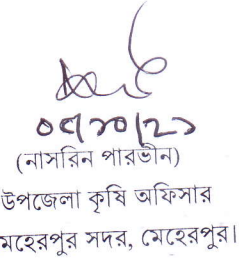 ০৫/১০/২১
(নাসরিন পারভীন)
উপজেলা কৃষি অফিসার
মেহেরপুর সদর, মেহেরপুর।